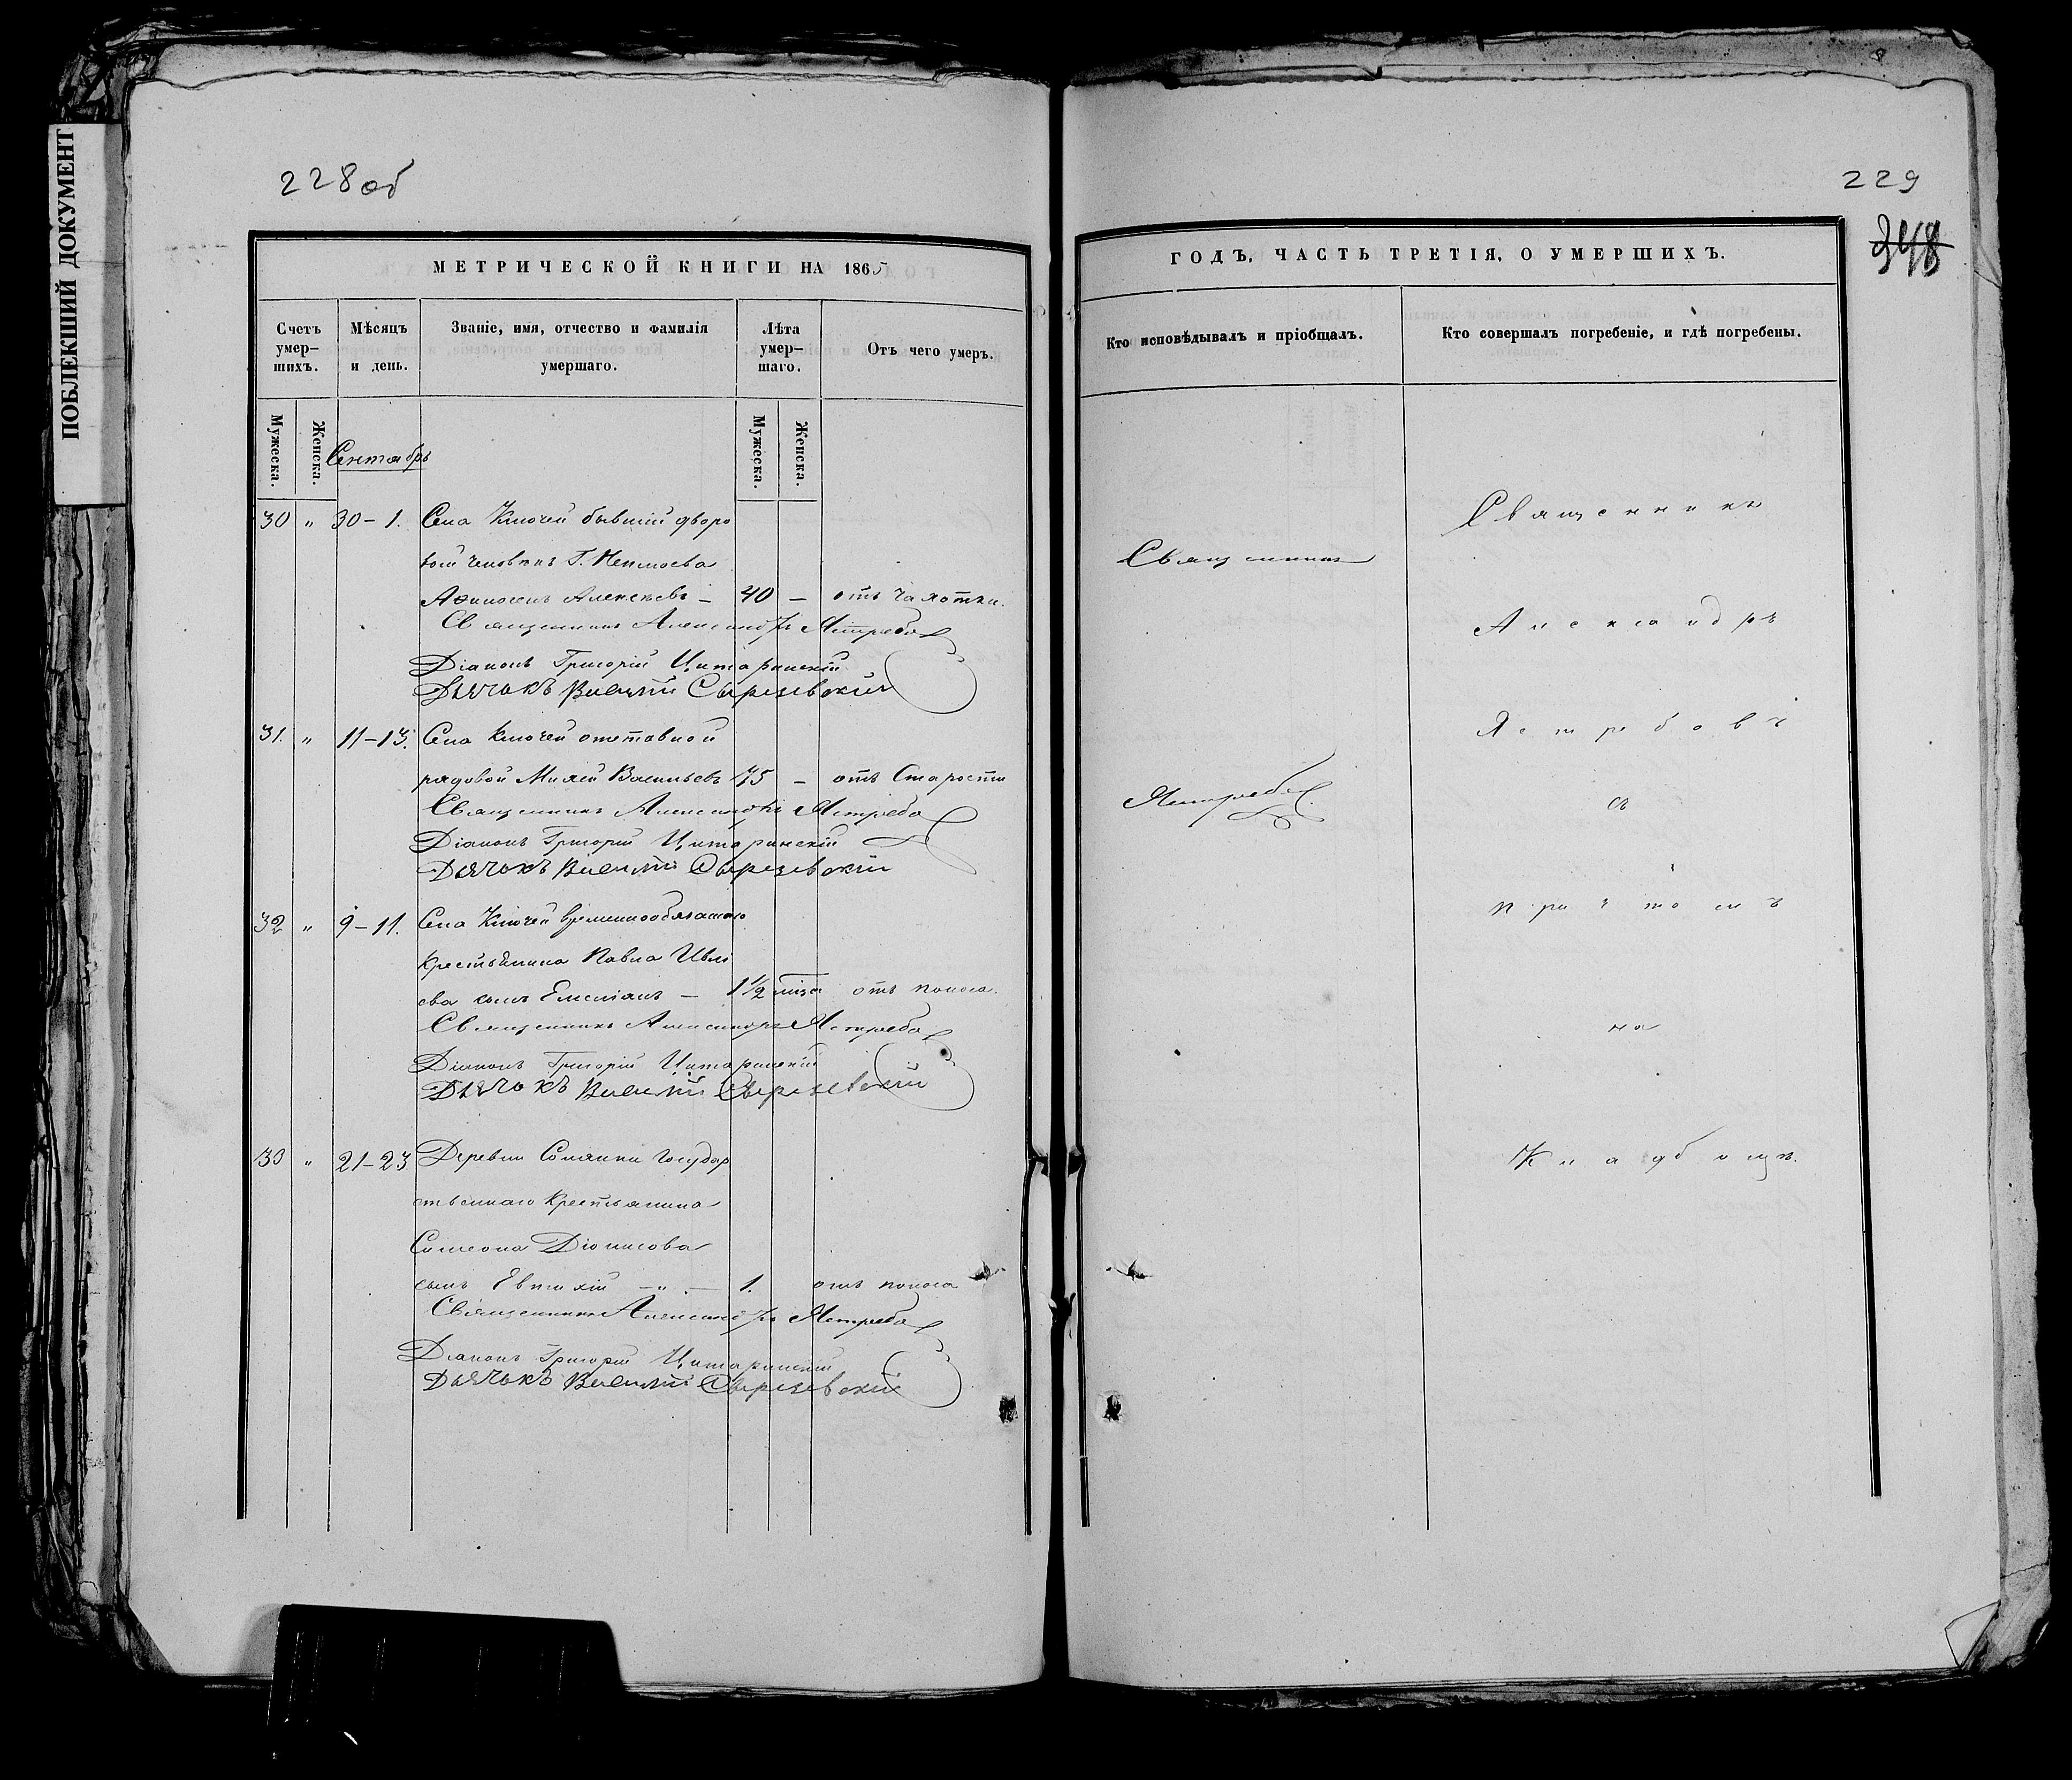 ПОБЛЕКШИЙ ДОКУМЕНТ
228об
МЕТРИЧЕСКОЙ КНИГИ НА 1865
Счетъ умер–шихъ.
Мѣсяцъ и день.
Званіе, имя, отчество и фамилія умершаго.
Лѣта умер–шаго.
Отъ чего умеръ.
Мужеска.
Женска.
Мужеска.
Женска.
Сентябрь
30 " 30–1. Села Ключей бывшій дворо
вой человѣкъ Г.
Алексѣевъ – 40 – отъ чахотки.
Священникъ Александръ Ястребов
Діаконъ Григорій Цитаринскій
Дьячокъ Василій Сырневскій
31. " 11–13. Села Ключей отставной
рядовой Васильевъ 75 – отъ Старости
Священникъ Александръ Ястребов
Діаконъ Григорій Цитаринскій
Дьячокъ Василій Сырневскій
32 " 9–11. Села Ключей временнообязаннаго
крестьянина Павла Ивле
ва сынъ Емеліанъ – 1½ года отъ поноса.
Священникъ Александръ Ястребов
Діаконъ Григорій Цитаринскій
Дьячокъ Василій Сырневскій
33 " 21–23 Деревни Солянки Государ
ственнаго крестьянина
Симеона Діонисова
сынъ Евтихій – " – 1. отъ поноса
Священникъ Александръ Ястребов
Діаконъ Григорій Цитаринскій
Дьячокъ Василій Сырневскій
229
348
ГОДЪ, ЧАСТЬ ТРЕТІЯ, О УМЕРШИХЪ.
Кто исповѣдывалъ и пріобщалъ.
Кто совершалъ погребеніе, и гдѣ погребены.
Священникъ
Ястребов
Священникъ
Александръ
Ястребовъ
съ
причтомъ
на
Кладбищѣ.